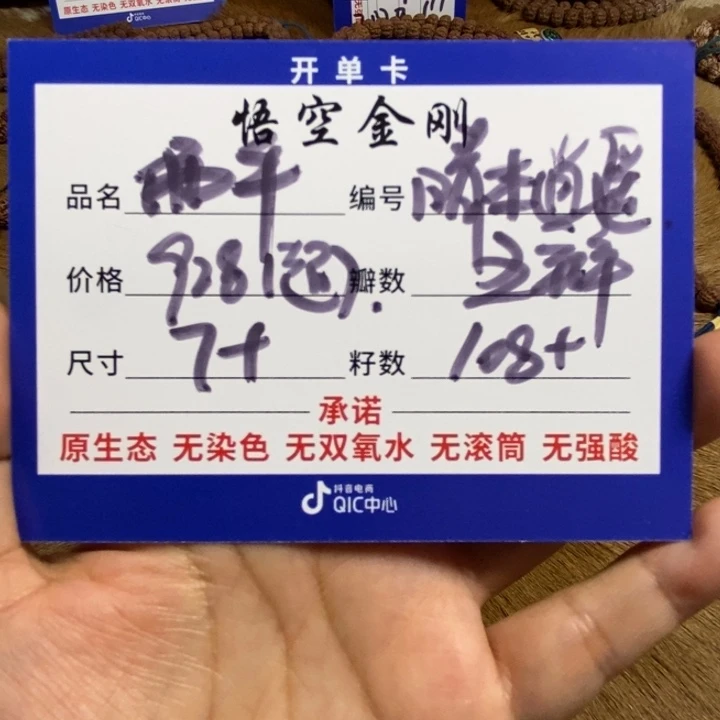 开单卡
悟空金刚
品名 编号
价格 928 瓣数 五瓣
尺寸 7+ 籽数 108+
承诺
原生态 无染色 无双氧水 无滚筒 无强酸
抖音电商
QIC中心